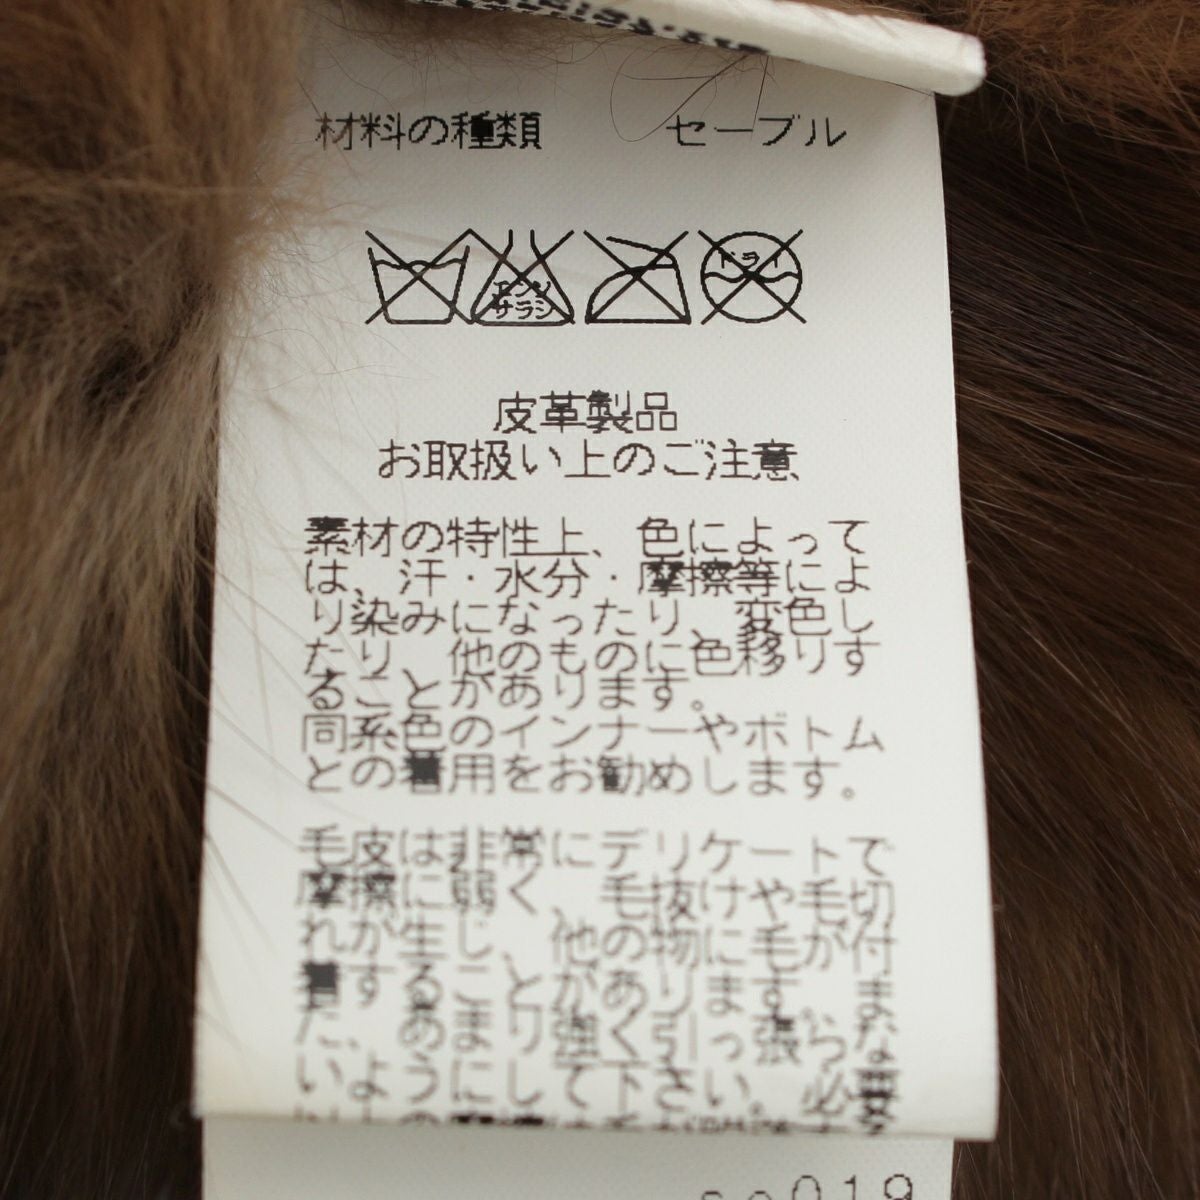 材料の種類 セーブル
エンソ
サラシ
ドライ
皮革製品
お取扱い上のご注意
素材の特性上、色によって
は、汗・水分・摩擦等によ
り染みになったり、変色し
たり、他のものに色移りす
ることがあります。
同系色のインナーやボトム
との着用をお勧めします。
毛皮は非常にデリケートで
摩擦に弱く、毛抜けや毛切
れが生じ、他の物に毛が付
着することがあります。ま
た、あまり強く引っ張らな
いようにして下さい。必要
019